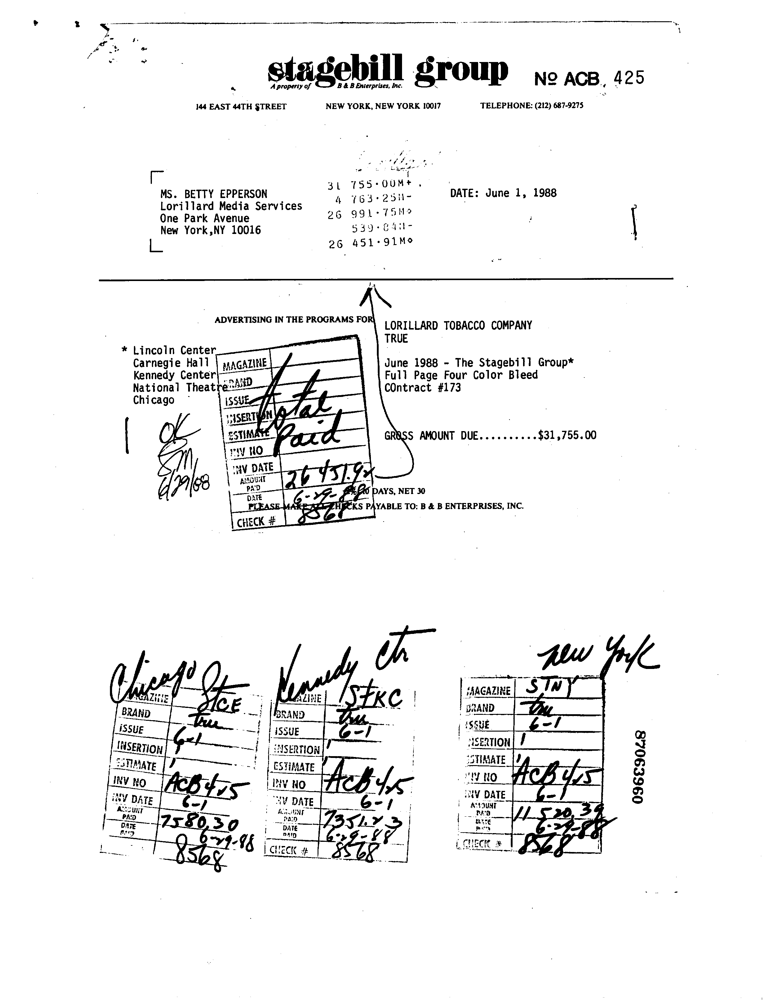 stagebill group
A property of B & B Enterprises, Inc.
Nº ACB 425
144 EAST 44TH STREET NEW YORK, NEW YORK 10017 TELEPHONE: (212) 687-9275
MS. BETTY EPPERSON
Lorillard Media Services
One Park Avenue
New York,NY 10016
31 755.00M+
4 763.25M-
26 991.75M◇
539.84M-
26 451.91M◇
DATE: June 1, 1988
ADVERTISING IN THE PROGRAMS FOR
LORILLARD TOBACCO COMPANY
TRUE
* Lincoln Center
Carnegie Hall
Kennedy Center
National Theatre
Chicago
June 1988 - The Stagebill Group*
Full Page Four Color Bleed
COntract #173
GROSS AMOUNT DUE..........$31,755.00
MAGAZINE
BRAND
ISSUE
INSERTION
ESTIMATE
INV NO
INV DATE
AMOUNT PAID 26451.92
DATE 6-29-88
CHECK # 8568
Total Paid
OK
6/29/88
DAYS, NET 30
PLEASE MAKE ALL CHECKS PAYABLE TO: B & B ENTERPRISES, INC.
Chicago
MAGAZINE STCE
BRAND True
ISSUE 6-1
INSERTION 1
ESTIMATE
INV NO ACB 425
INV DATE 6-1
AMOUNT PAID 7580.30
DATE PAID 6-29-88
8568
Kennedy Ctr
MAGAZINE STKC
BRAND True
ISSUE 6-1
INSERTION 1
ESTIMATE
INV NO ACB 425
INV DATE 6-1
AMOUNT PAID 7351.23
DATE PAID 6-29-88
CHECK # 8568
New York
MAGAZINE STNY
BRAND True
ISSUE 6-1
INSERTION 1
ESTIMATE
INV NO ACB 425
INV DATE 6-1
AMOUNT PAID 11520.39
DATE PAID 6-29-88
CHECK # 8568
87063960